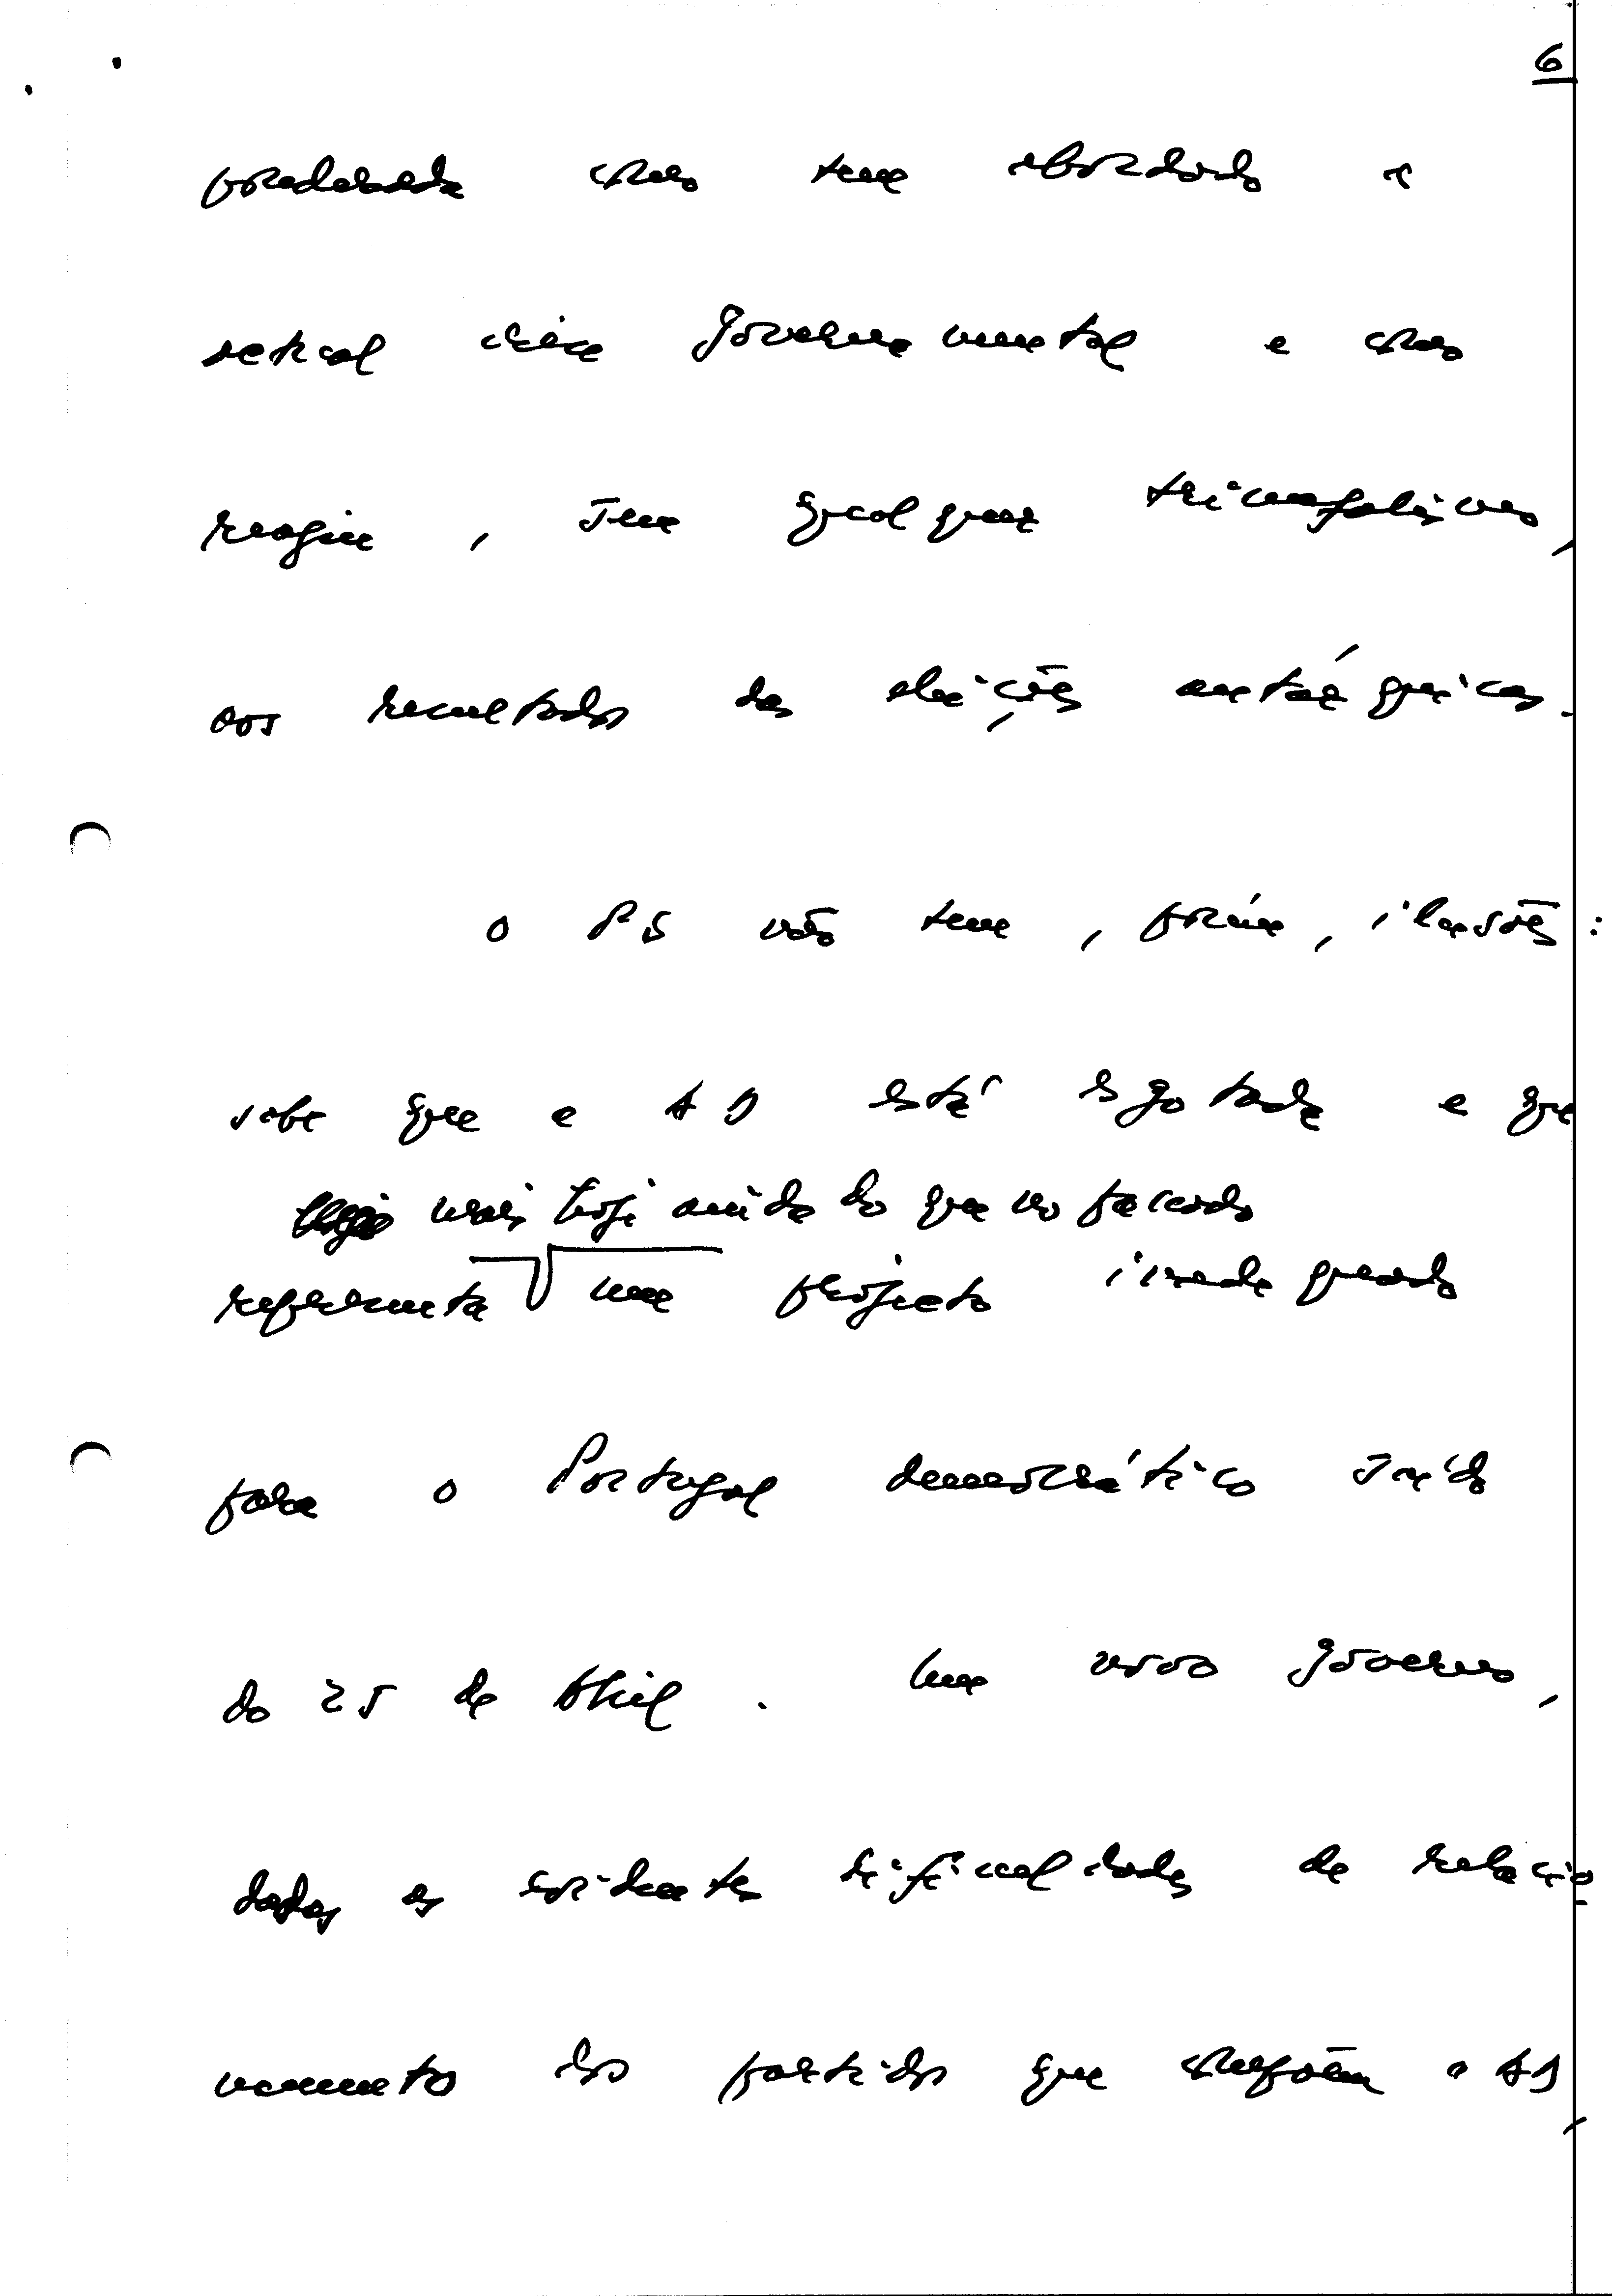 6
ponderada como tem abordado a
actual crise governamental e como
reagiu, sem qualquer triunfalismo,
aos resultados das eleições autárquicas.
O PS não tem, porém, ilusões:
sabe que a AD está esgotada e que
mais hoje ainda do que no passado
representa um projecto inadequado
para o Portugal democrático saído
do 25 de Abril. Um novo governo,
dadas as evidentes dificuldades de relacio
namento dos partidos que compõem a AD,